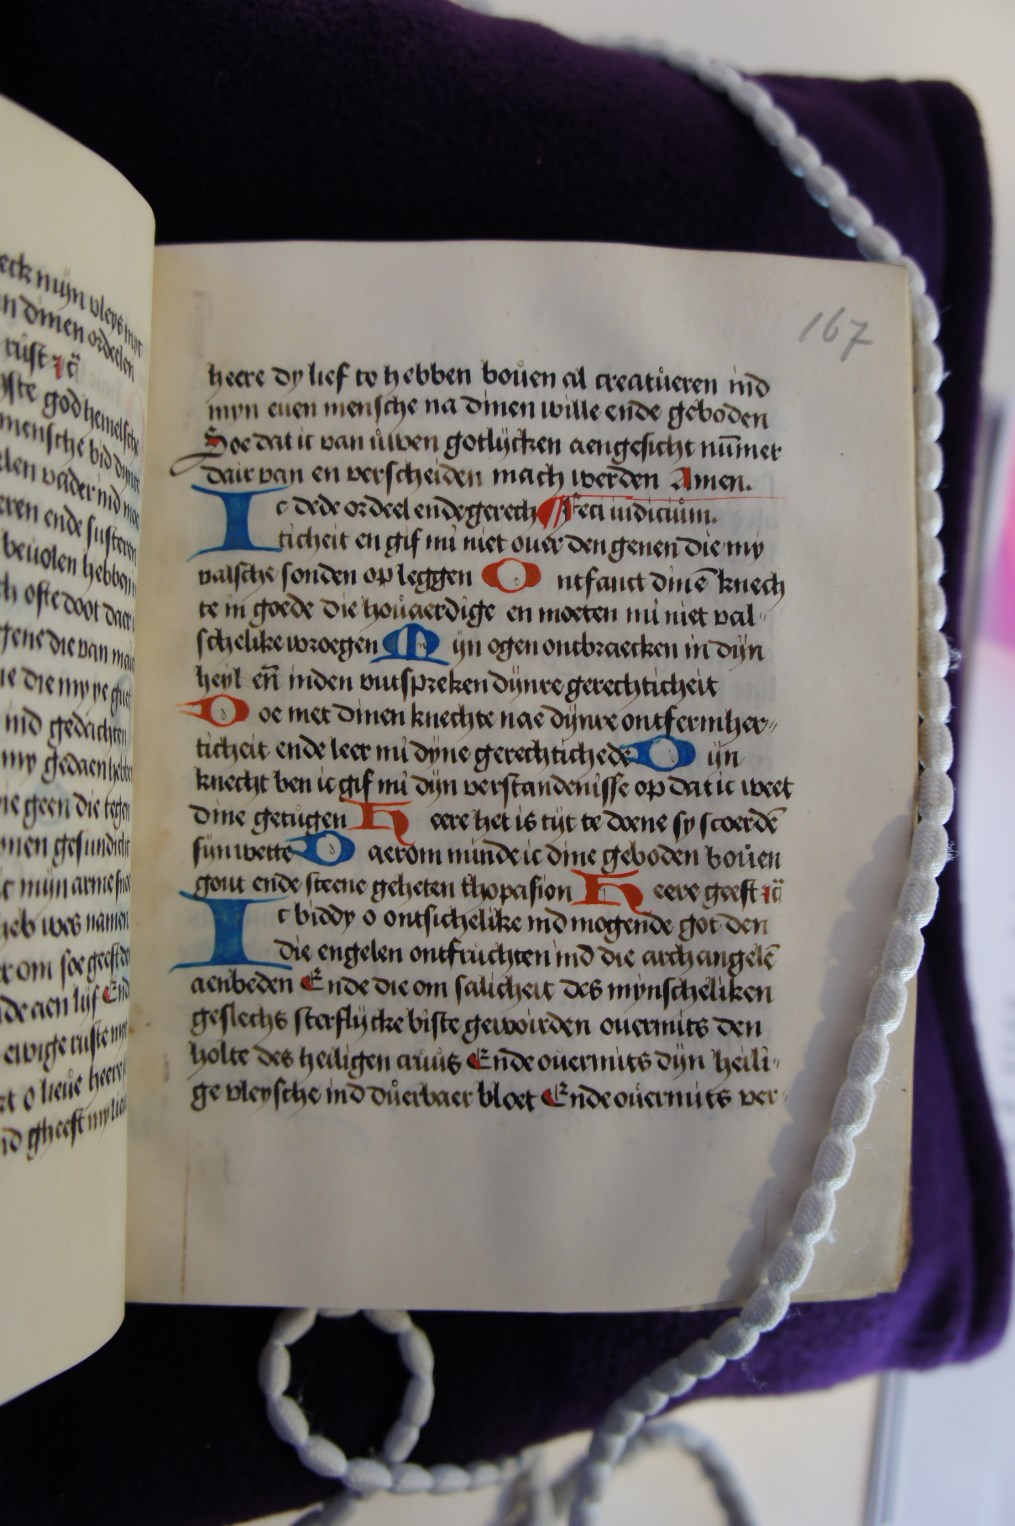 eck mijn vleys myt
n dinen ordelen
rust
yste god hemelsche
mensche bid
den vader ind
eren ende susteren
beuolen hebben
h ofte doot daer
gene die van
e die my ye guet
ind gedachten
my gedaen hebben
ie geen die tegen
men gesundicht
t mijn arme
heb wes namen
r om soe geeft
de aen lijf End
ewige ruste
t o lieue heere
nd gheeft my
167
heere dy lief to hebben bouen al creatueren ind
myn euen mensche na dinen wille ende geboden
Soe dat ic van uwen gotlycken aengesicht nūmer
dair van en verscheiden mach werden Amen.
Ic dede ordeel ende gerech Feci iudicium.
ticheit en gif mi niet ouer den genen die my
valsche sonden op leggen Ontfanct dinē knech
te in goede die houaerdige en moeten mi niet val-
schelike wroegen Mijn ogen ontbraecken in dijn
heyl eñ inden vutspreken dynre gerechticheit
Doe met dinen knechte nae dynre ontfermher-
ticheit ende leer mi dyne gerechtichede Dijn
knecht ben ic gif mi dijn verstandenisse op dat ic weet
dine getugen Heere het is tijt te doene sy scoerdē
sijn wette Daerom minde ic dine geboden bouen
gout ende steene geheten thopasion Heere geeft
Ic biddy o ontsichelike ind mogende got den
die engelen ontfruchten ind die archangelē
aenbeden Ende die om salicheit des mynscheliken
geslechs sterflycke biste geworden ouermits den
holte des heiligen cruus Ende ouermits dijn heili-
ge vleysche ind duerbaer bloet Ende ouermits ver-